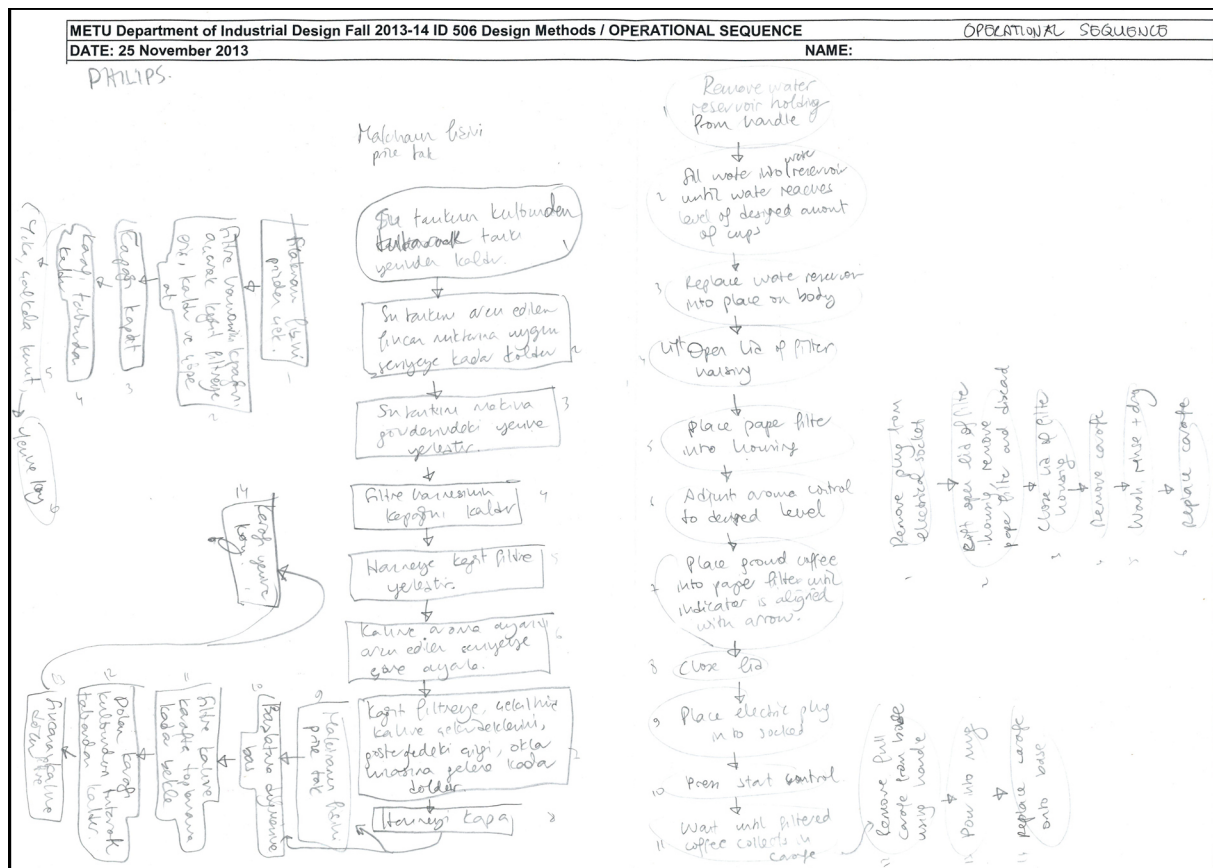 METU Department of Industrial Design Fall 2013-14 ID 506 Design Methods / OPERATIONAL SEQUENCE
OPERATIONAL SEQUENCE
DATE: 25 November 2013
NAME:
PHILIPS.
prize tak
Su tankını kulbundan
tutarak tankı
yerinden kaldır.
1
Su tankını arzu edilen
fincan miktarına uygun
seviyeye kadar doldur
2
Su tankını makina
gövdesindeki yerine
yerleştir.
3
Filtre haznesinin
kapağını kaldır
4
Hazneye kağıt filtre
yerleştir.
5
Kahve aroma ayarını
arzu edilen seviyeye
göre ayarla.
6
Kağıt filtreye,
kahve
doldur.
7
Hazneyi kapa
8
9
Makinanın fişini
prize tak
10
Başlatma düğmesine
bas
11
Filtre kahve
karafta toplanana
kadar bekle
12
Dolan karafı
kulbundan tutarak
tabandan kaldır.
13
Fincanlara kahve
14
Karafı yerine
koy.
fişini
prizden çek.
1
Filtre haznesinin kapağını
açarak kağıt filtreye
kaldır ve çöpe
at
2
Kapağı kapat
3
Karafı tabandan
kaldır
4
Yıka, çalkala, kurut,
5
yerine koy
6
1 Remove water
reservoir holding
from handle
2 fill water into water reservoir
until water reaches
level of desired amount
of cups
3 Replace water reservoir
into place on body
4 Lift Open lid of filter
housing
5 Place paper filter
into housing
6 Adjust aroma control
to desired level
7 Place ground coffee
into paper filter until
indicator is aligned
with arrow.
8 Close lid
9 Place electric plug
into socked
10 Press start control
11 Wait until filtered
coffee collects in
carafe
Remove full
carafe from base
using handle
Pour into mug
Replace carafe
onto base
1 Remove plug from
electrical socket
2 open lid of filter
housing, remove
paper filter and discard
3 Close lid of filter
housing
4 Remove carafe
5 Wash, rinse + dry
6 Replace carafe